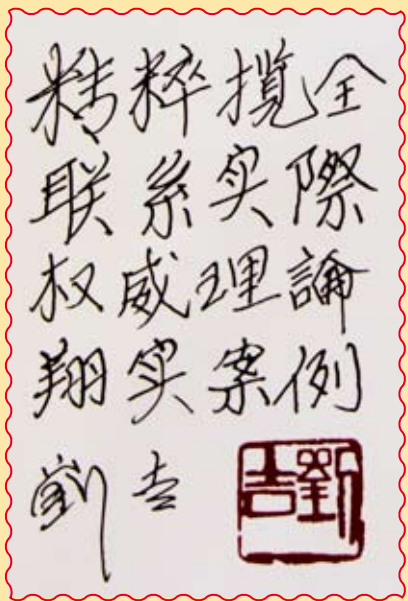 精粹揽全
联系实際
权威理論
翔实案例
劉吉
劉吉